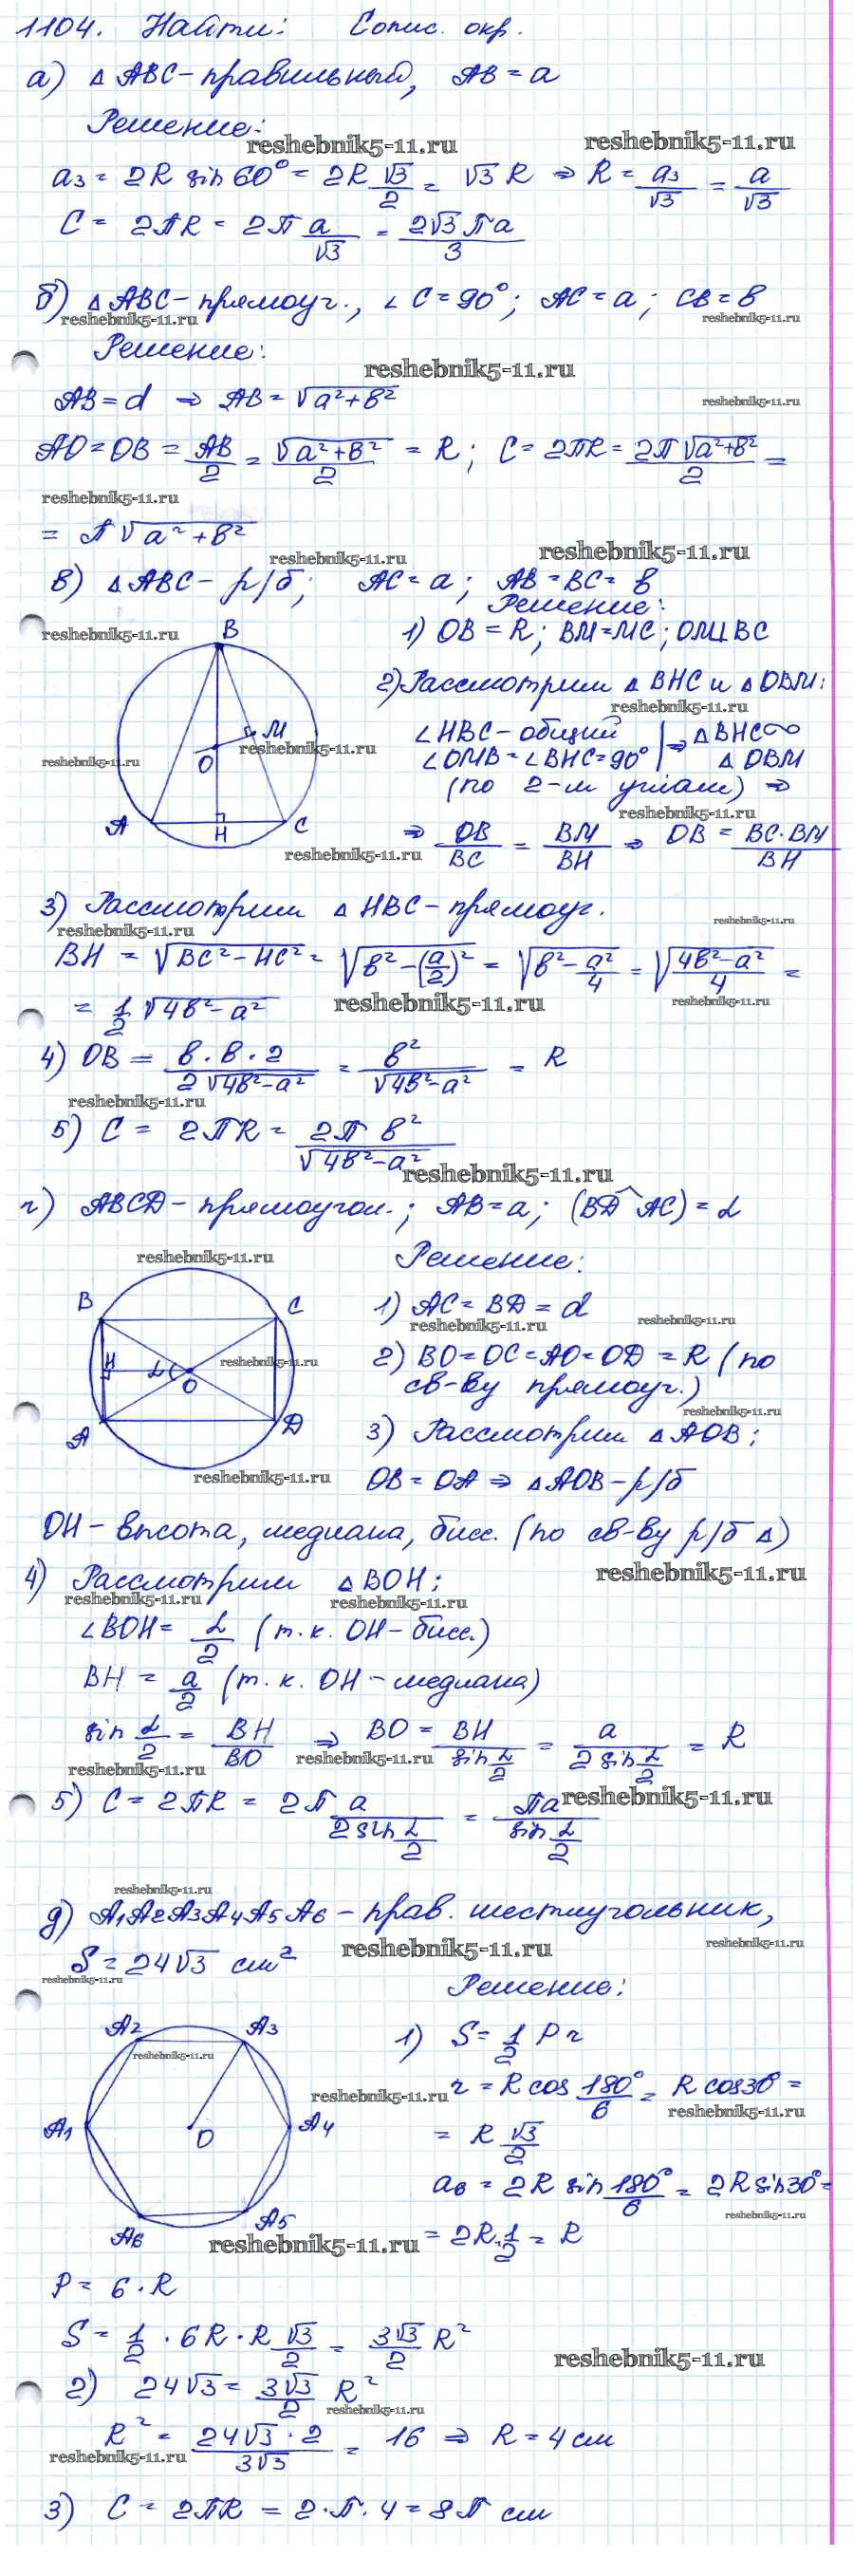 1104. Найти: Cопис. окр.
а) △ABC - правильный, AB = a
Решение:
reshebnik5-11.ru reshebnik5-11.ru
a₃ = 2R sin 60° = 2R √3/2 = √3 R ⇒ R = a₃/√3 = a/√3
C = 2πR = 2π a/√3 = 2√3πa/3
б) △ABC - прямоуг., ∠C = 90°; AC = a; CB = в
reshebnik5-11.ru reshebnik5-11.ru
Решение:
reshebnik5-11.ru
AB = d ⇒ AB = √(a² + в²)
reshebnik5-11.ru
AO = OB = AB/2 = √(a² + в²)/2 = R; C = 2πR = 2π√(a² + в²)/2 =
reshebnik5-11.ru
= π√(a² + в²)
reshebnik5-11.ru reshebnik5-11.ru
в) △ABC - р/б; AC = a; AB = BC = в
Решение:
reshebnik5-11.ru
B
M
O
A
H
C
reshebnik5-11.ru
reshebnik5-11.ru
reshebnik5-11.ru
1) OB = R; BM = MC; OM⊥BC
2) Рассмотрим △BHC и △OBM:
reshebnik5-11.ru
∠HBC - общий | ⇒ △BHC ∞
∠OMB = ∠BHC = 90° | △OBM
(по 2-м углам) ⇒
reshebnik5-11.ru
⇒ OB/BC = BM/BH ⇒ OB = BC·BM/BH
3) Рассмотрим △HBC - прямоуг.
reshebnik5-11.ru reshebnik5-11.ru
BH = √(BC² - HC²) = √(в² - (a/2)²) = √(в² - a²/4) = √((4в² - a²)/4) =
= 1/2 √(4в² - a²)
reshebnik5-11.ru reshebnik5-11.ru
4) OB = в·в·2/(2√(4в² - a²)) = в²/√(4в² - a²) = R
reshebnik5-11.ru
5) C = 2πR = 2π в²/√(4в² - a²)
reshebnik5-11.ru
г) ABCD - прямоугол.; AB = a; (BD^AC) = α
reshebnik5-11.ru
Решение:
B
C
H
α
O
A
D
reshebnik5-11.ru
reshebnik5-11.ru
1) AC = BD = d
reshebnik5-11.ru reshebnik5-11.ru
2) BO = OC = AO = OD = R (по
св-ву прямоуг.)
reshebnik5-11.ru
3) Рассмотрим △AOB;
OB = OA ⇒ △AOB - р/б
OH - высота, медиана, бисс. (по св-ву р/б △)
reshebnik5-11.ru
4) Рассмотрим △BOH;
reshebnik5-11.ru reshebnik5-11.ru
∠BOH = α/2 (т.к. OH - бисс.)
BH = a/2 (т.к. OH - медиана)
sin α/2 = BH/BO ⇒ BO = BH/sin α/2 = a/(2 sin α/2) = R
reshebnik5-11.ru reshebnik5-11.ru
5) C = 2πR = 2π a/(2 sin α/2) = πa/sin α/2
reshebnik5-11.ru
reshebnik5-11.ru
д) A₁A₂A₃A₄A₅A₆ - прав. шестиугольник,
S = 24√3 см²
reshebnik5-11.ru reshebnik5-11.ru
reshebnik5-11.ru
Решение:
A₂
A₃
A₁
O
A₄
A₆
A₅
reshebnik5-11.ru
1) S = 1/2 Pr
r = R cos 180°/6 = R cos 30° =
reshebnik5-11.ru reshebnik5-11.ru
= R √3/2
a₆ = 2R sin 180°/6 = 2R sin 30° =
reshebnik5-11.ru
= 2R·1/2 = R
reshebnik5-11.ru
P = 6·R
S = 1/2 · 6R·R √3/2 = 3√3/2 R²
reshebnik5-11.ru
2) 24√3 = 3√3/2 R²
reshebnik5-11.ru
R² = 24√3·2/3√3 = 16 ⇒ R = 4 см
reshebnik5-11.ru
3) C = 2πR = 2·π·4 = 8π см